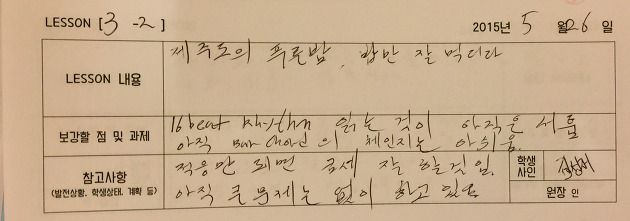 LESSON [3-2] 2015년 5 월 26 일
LESSON 내용 제주도의 푸른밤, 밥만 잘 먹더라
보강할 점 및 과제 16beat Rhythm 읽는 것이 아직은 서툼
아직 Bar chord의 체인지는 아쉬움.
참고사항 적응만 되면 금세 잘 할것임. 학생
사인
(발전상황, 학생상태, 계획 등) 아직 큰 문제는 없이 하고 있음 원장 인